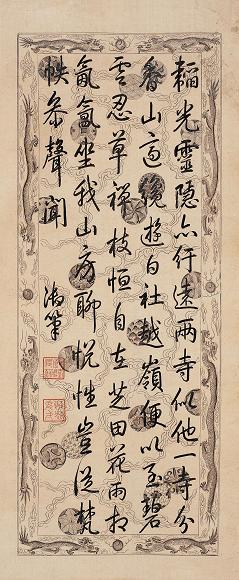 韜光靈隱亦行遠兩寺似他一寺分
香山適纔遊白社越嶺便以至碧
雲忍草禅枝恒自在芝田花雨相
氤氲坐我山房聊悅性豈從梵
帙參聲聞
御筆